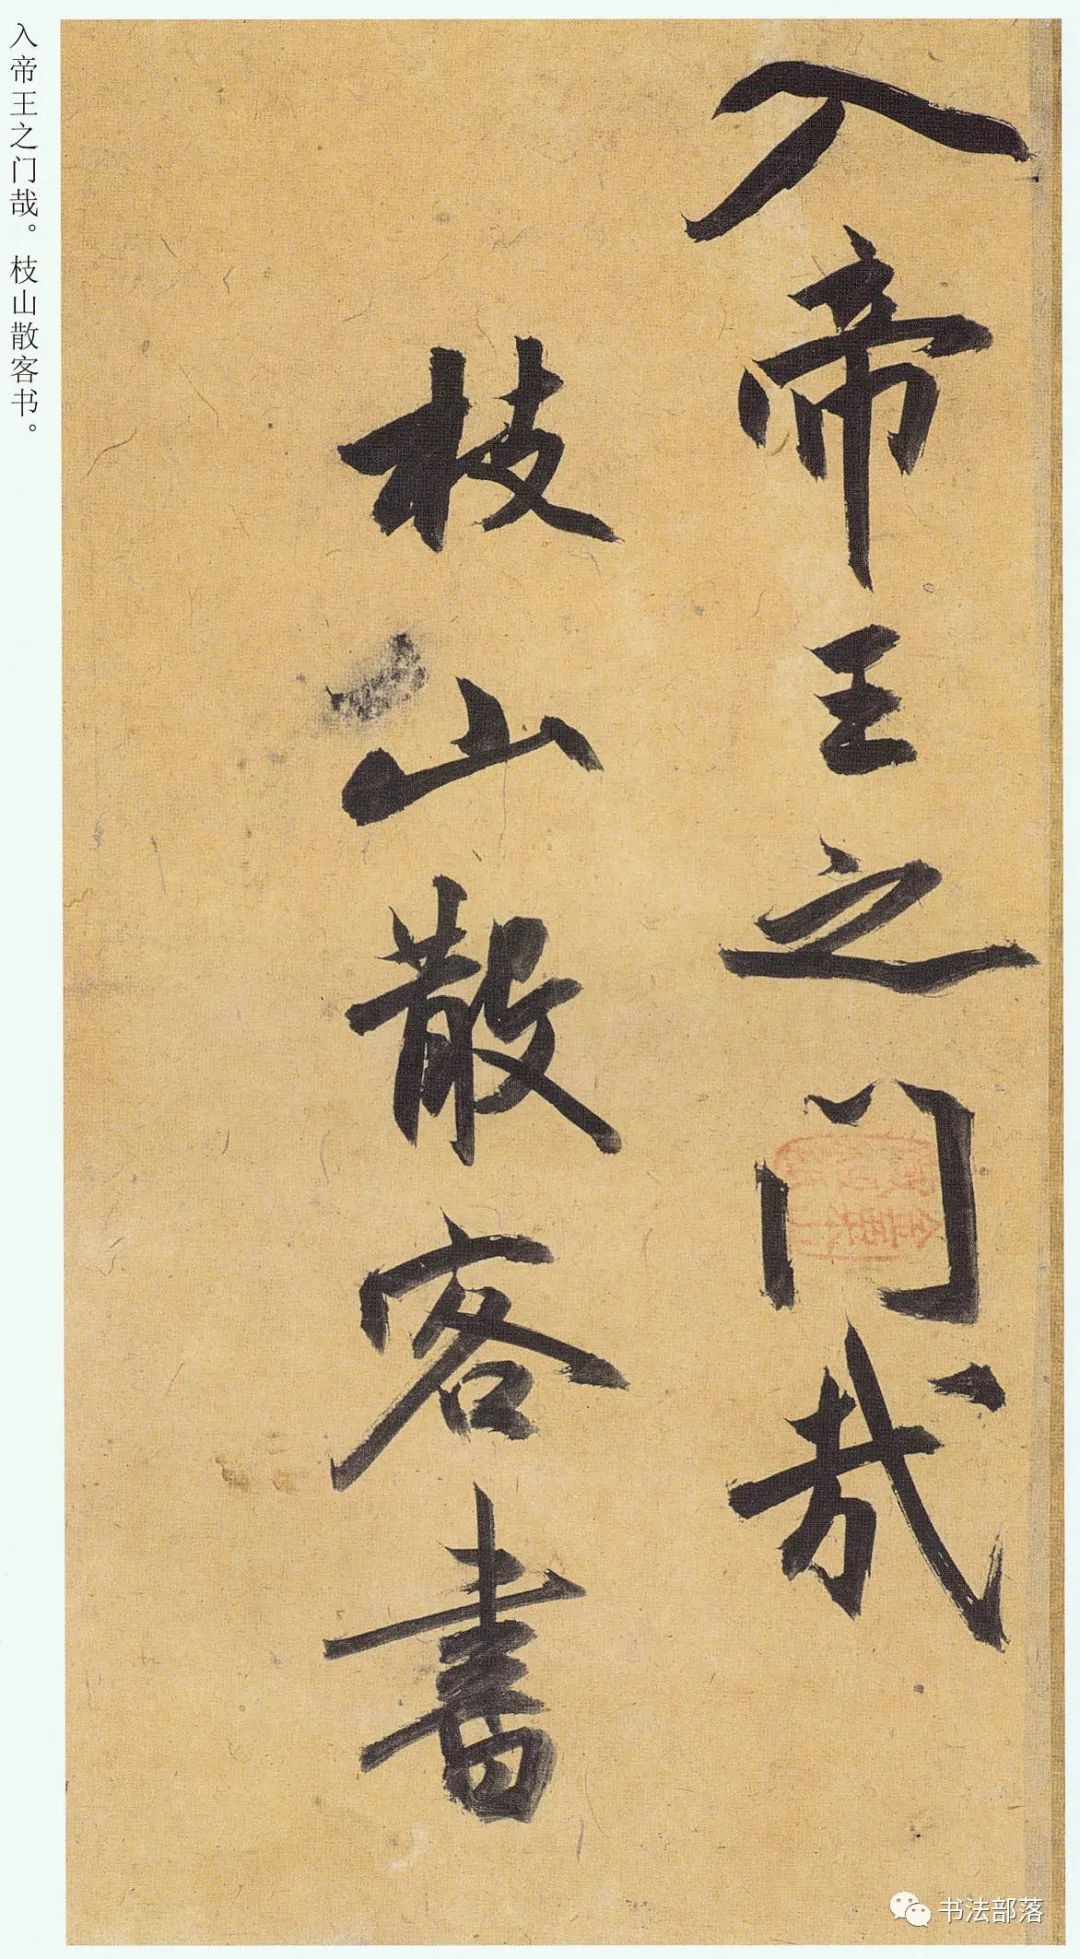 入帝王之门哉
枝山散客書
入帝王之门哉。枝山散客书。
书法部落